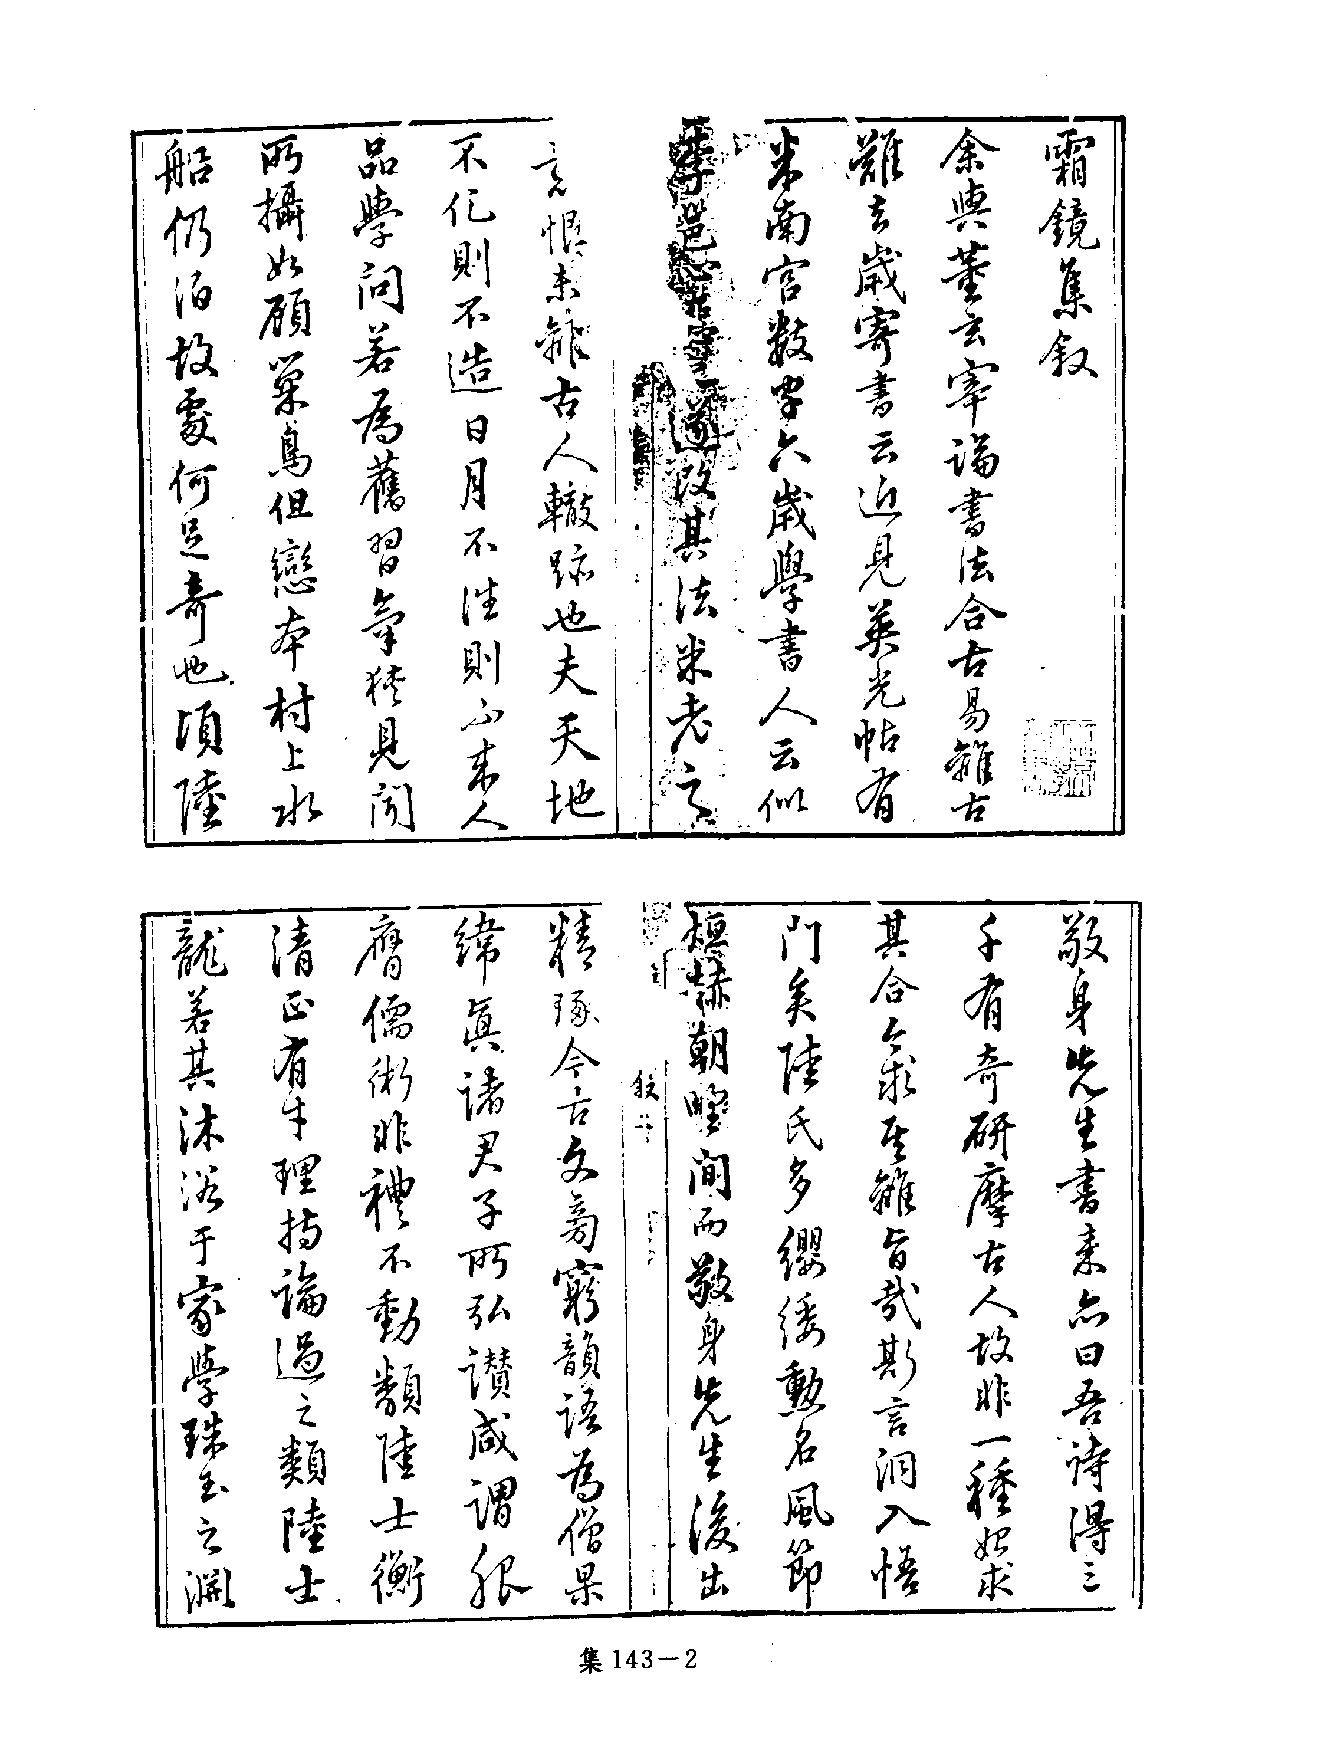 霜鏡集敘
余與董玄宰論書法合古易離古
難去歲寄書云近見英光帖有
米南宮數字六歲學書人云似
李邕心遂改其法米老之
意恨未離古人轍跡也夫天地
不化則不造日月不往則不來人
品學問若為舊習氣狹見聞
所攝如顧巢鳥但戀本村上水
船仍泊故處何足奇也頃陸
敬身先生書來亦曰吾詩得三
千有奇研摩古人故非一種始求
其合今求其離旨哉斯言洞入悟
門矣陸氏多纓緌勳名風節
烜赫朝野間而敬身先生後出
精琢今古文章窮韻語為僧果
緯真諸君子所弘讚咸謂服
膺儒術非禮不動類陸士衡
清正有才理持論過之類陸士
龍若其沐浴于家學珠玉之淵
敘
集 143－2